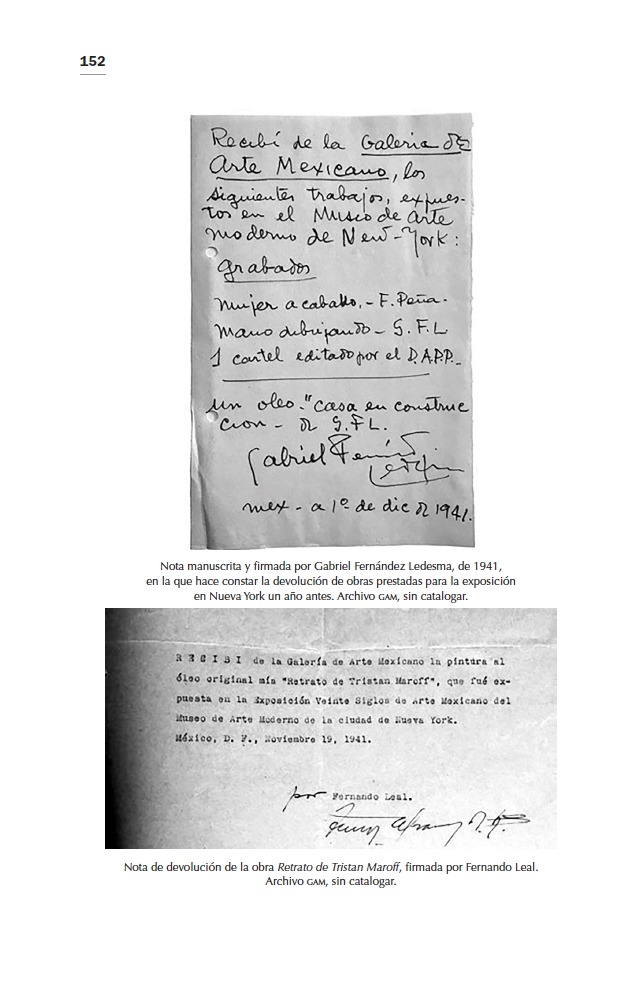 152
Recibí de la Galeria de
Arte Mexicano, los
siguientes trabajos, expues-
tos en el Museo de Arte
moderno de New-York:
grabados
mujer a caballo.- F. Peña.
mano dibujando - G. F. L
1 cartel editado por el D.A.P.P.-
un oleo.- "casa en construc
cion - de G.F.L.
Gabriel
mex - a 1º de dic de 1941.
Nota manuscrita y firmada por Gabriel Fernández Ledesma, de 1941,
en la que hace constar la devolución de obras prestadas para la exposición
en Nueva York un año antes. Archivo GAM, sin catalogar.
R E C I B I de la Galería de Arte Mexicano la pintura al
óleo original mía "Retrato de Tristan Maroff", que fué ex-
puesta en la Exposición Veinte Siglos de Arte Mexicano del
Museo de Arte Moderno de la ciudad de Nueva York.
México, D. F., Noviembre 19, 1941.
por Fernando Leal.
Nota de devolución de la obra Retrato de Tristan Maroff, firmada por Fernando Leal.
Archivo GAM, sin catalogar.